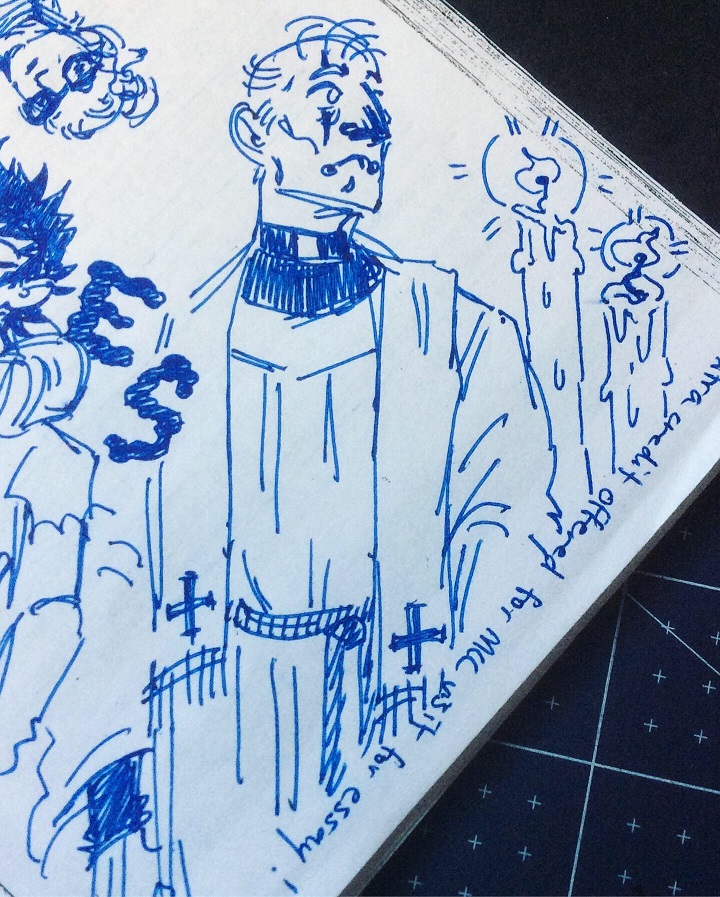 E
S
credit offered for MLC visit for essay!